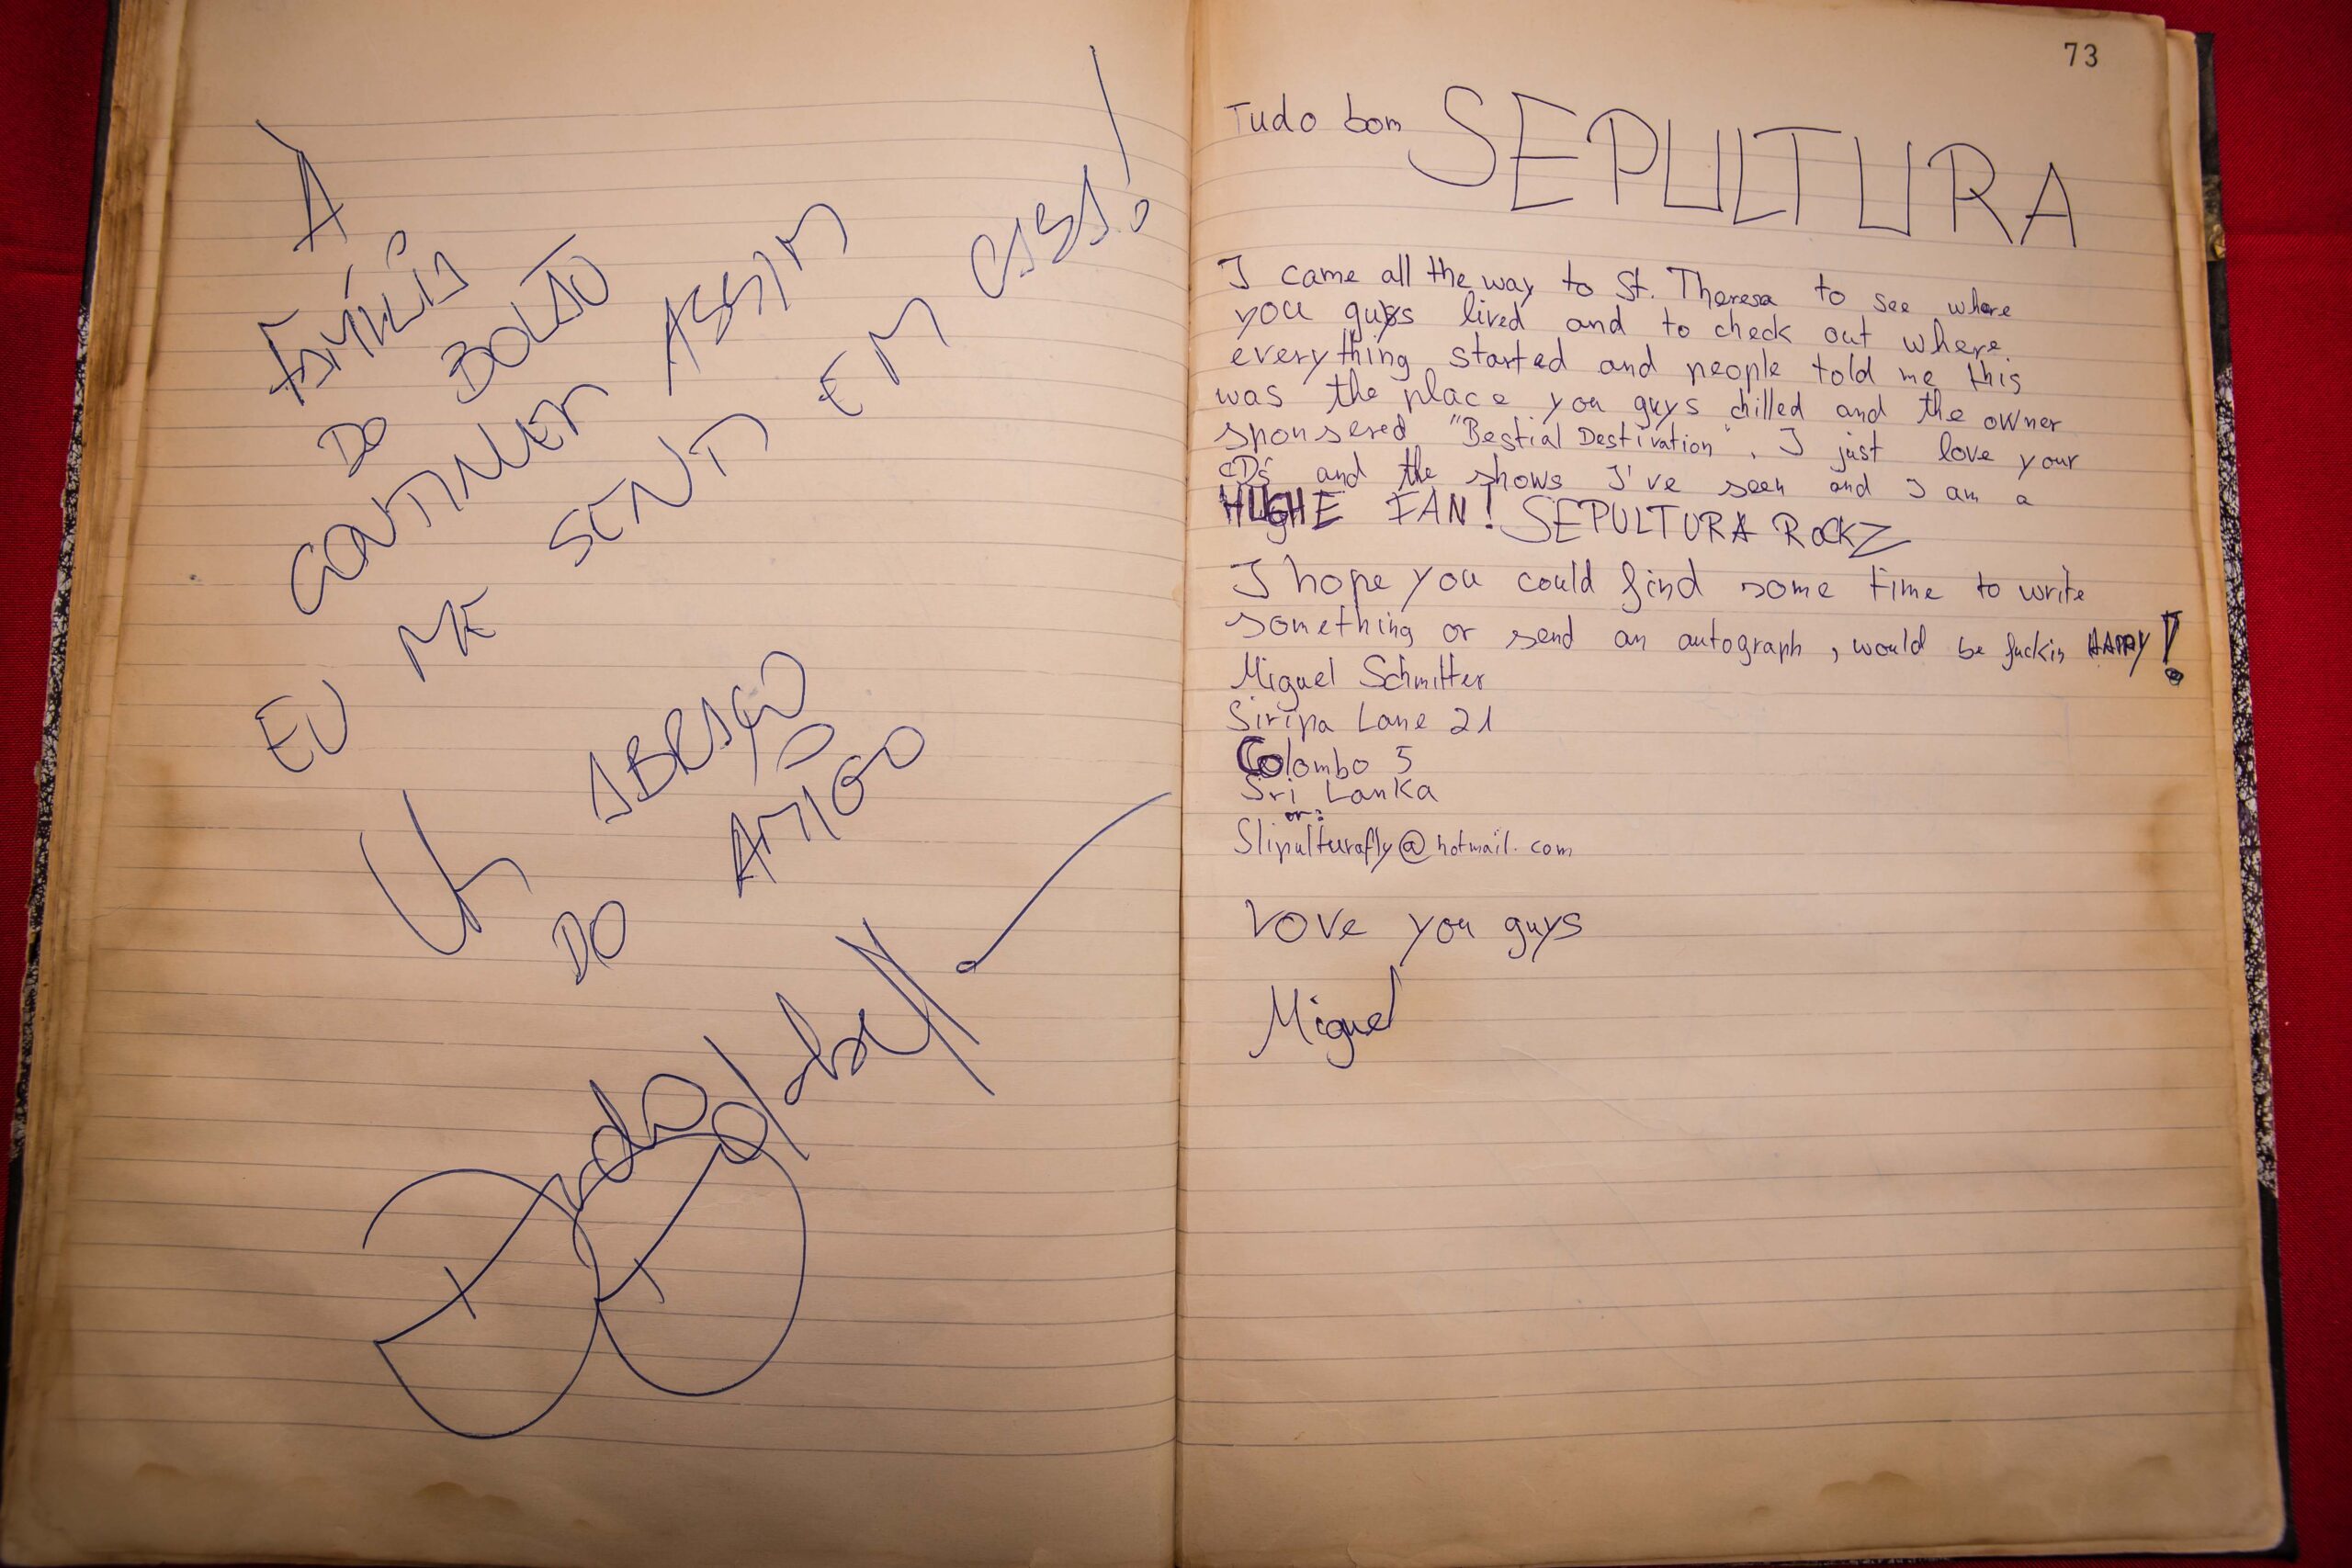 À
FAMÍLIA
DO BOLÃO
CONTINUEM ASSIM
EU ME SENTI EM CASA!
UM ABRAÇÃO
DO AMIGO
73
Tudo bom SEPULTURA
I came all the way to St. Theresa to see where
you guys lived and to check out where
everything started and people told me this
was the place you guys chilled and the owner
sponsered "Bestial Destivation". I just love your
CDs and the shows I've seen and I am a
HUGHE FAN! SEPULTURA ROCKZ
I hope you could find some time to write
something or send an autograph, would be fuckin HAPPY!
Miguel Schmitter
Siripa Lane 21
Colombo 5
Sri Lanka
or:
Slipulturafly@hotmail.com
Love you guys
Miguel